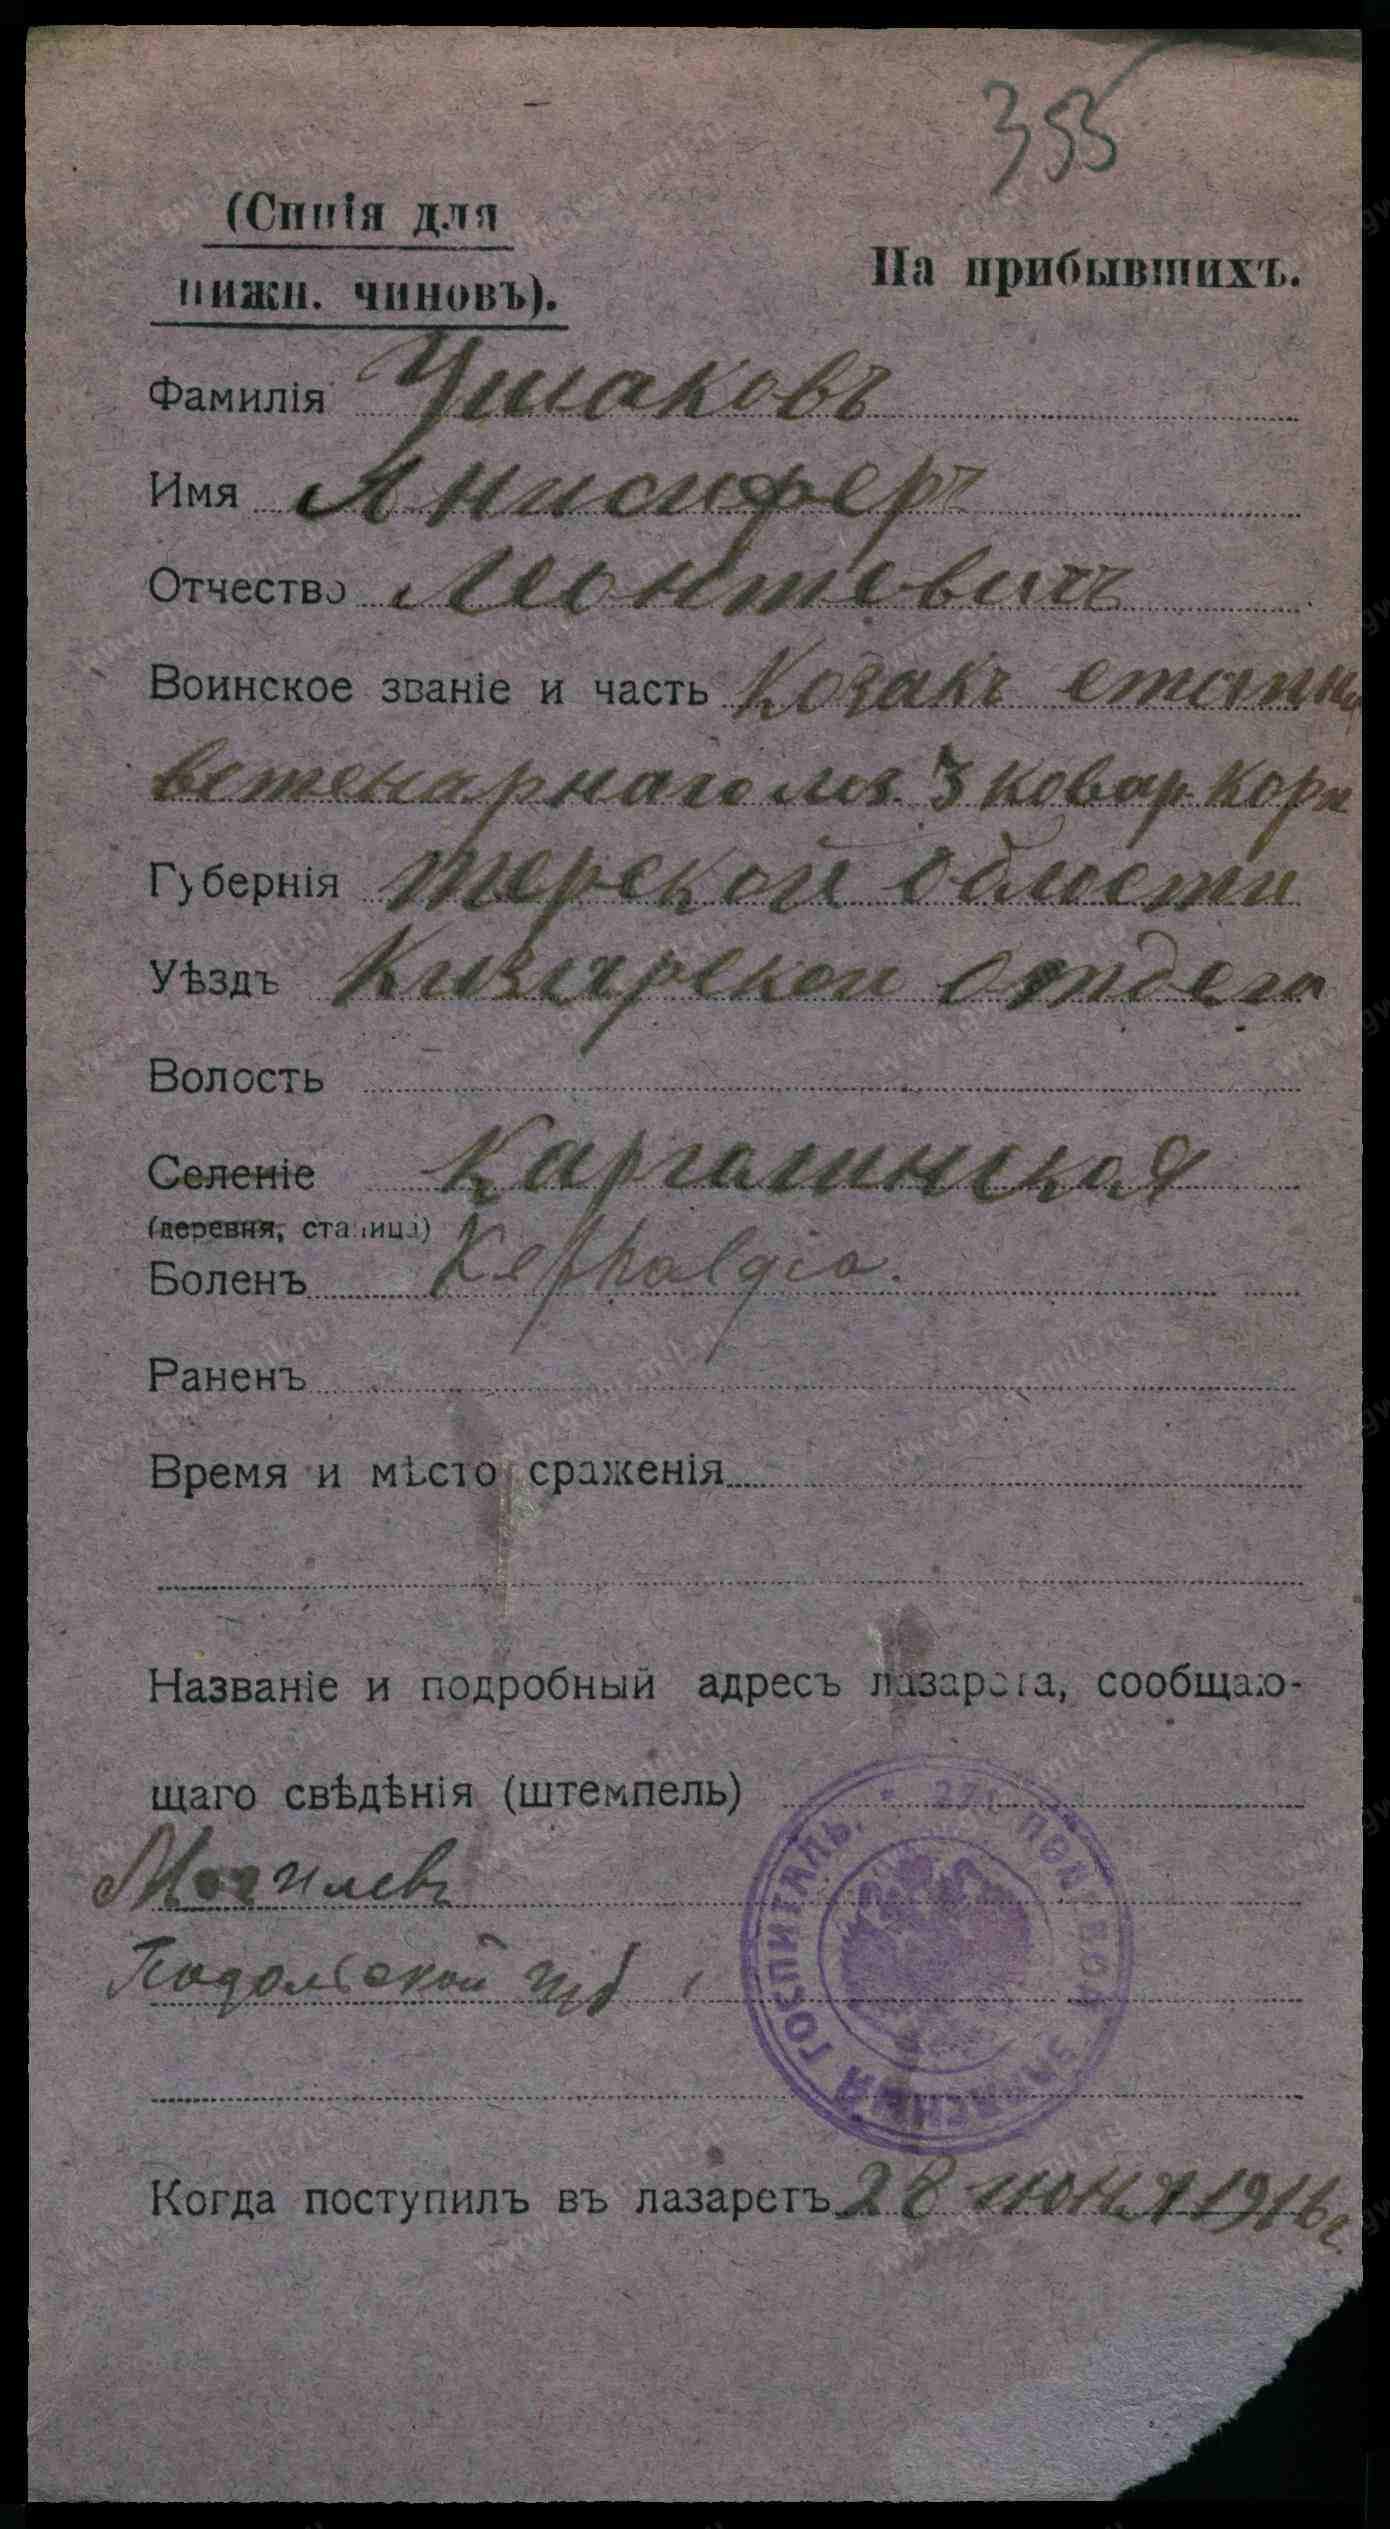 355
(Синія для
На прибывшихъ.
нижн. чиновъ).
Фамилія Ушаковъ
Имя Анисиферъ
Отчество Леонтевичъ
Воинское званіе и часть Козакъ етапн
ветенарнаго лаз. 3 кавар. Корп
Губернія терской области
Уѣздъ Кизлярскои отдела
Волость
Селеніе Каргалинская
(деревня, станица)
Боленъ Kephalgia.
Раненъ
Время и мѣсто сраженія
Названіе и подробный адресъ лазарета, сообщаю-
щаго свѣдѣнія (штемпель)
Могилевъ
Подольской губ
271 ПОЛЕВОЙ ЗАПАСНЫЙ ГОСПИТАЛЬ.
Когда поступилъ въ лазаретъ 28 июня 1916 г.